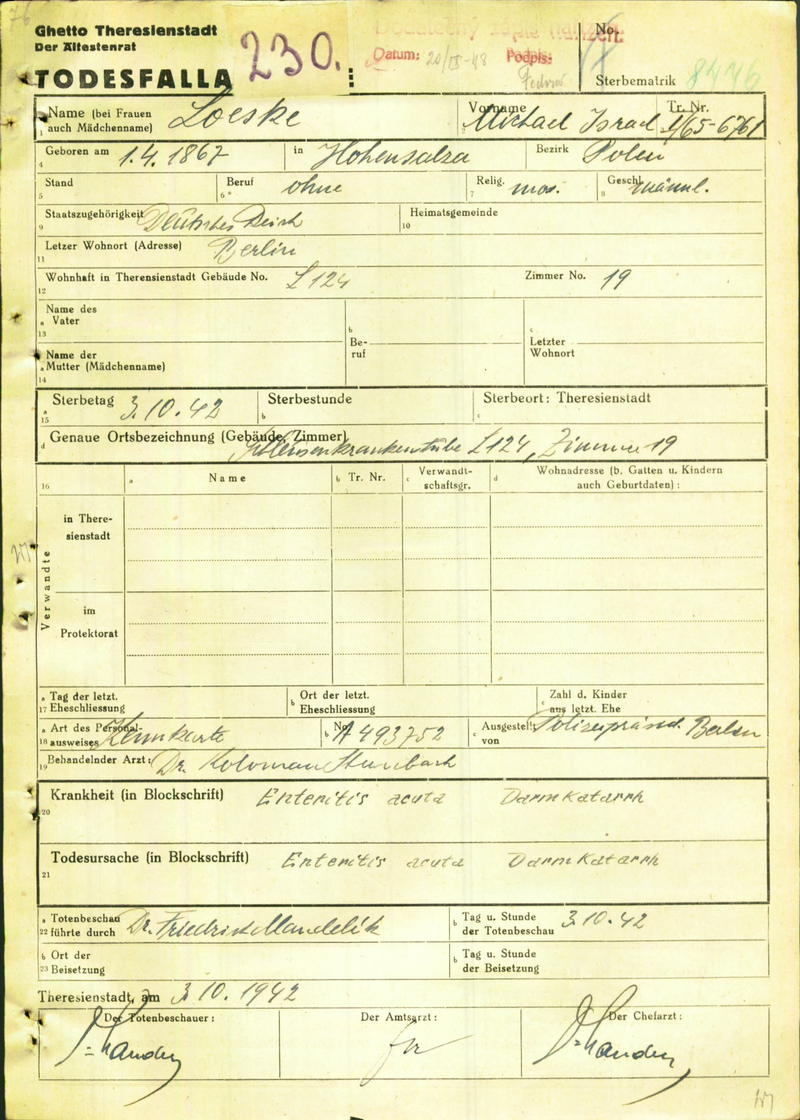 Ghetto Theresienstadt
Der Ältestenrat
TODESFALLA
230.
Datum: 20/III-48 Podpis:
No.
Sterbematrik
1 Name (bei Frauen auch Mädchenname) Loeske Vorname Michael Israel Tr. Nr. I/65-6761
4 Geboren am 1.4.1867 in Hohensalza Bezirk Polen
5 Stand 6 Beruf ohne 7 Relig. mos. 8 Geschl. männl.
9 Staatszugehörigkeit Deutsches Reich 10 Heimatsgemeinde
11 Letzer Wohnort (Adresse) Berlin
12 Wohnhaft in Therensienstadt Gebäude No. L124 Zimmer No. 19
13 a Name des Vater b Beruf c Letzter Wohnort
14 a Name der Mutter (Mädchenname)
15 a Sterbetag 3.10.42 b Sterbestunde c Sterbeort: Theresienstadt
d Genaue Ortsbezeichnung (Gebäude, Zimmer) L124, Zimmer 19
16 a Name b Tr. Nr. c Verwandtschaftsgr. d Wohnadresse (b. Gatten u. Kindern auch Geburtdaten):
Verwandte
in Theresienstadt
im Protektorat
17 a Tag der letzt. Eheschliessung b Ort der letzt. Eheschliessung c Zahl d. Kinder aus letzt. Ehe
18 a Art des Personalausweises Kennkarte b No. A 493752 c Ausgestellt von Polizeipräsid. Berlin
19 Behandelnder Arzt: Dr. Koloman
20 Krankheit (in Blockschrift) Enteritis acuta Darmkatarrh
21 Todesursache (in Blockschrift) Enteritis acuta Darmkatarrh
22 a Totenbeschau führte durch Dr. Friedrich Mandelik b Tag u. Stunde der Totenbeschau 3.10.42
23 b Ort der Beisetzung b Tag u. Stunde der Beisetzung
Theresienstadt, am 3.10.1942
Der Totenbeschauer: Der Amtsarzt: Der Chefarzt: